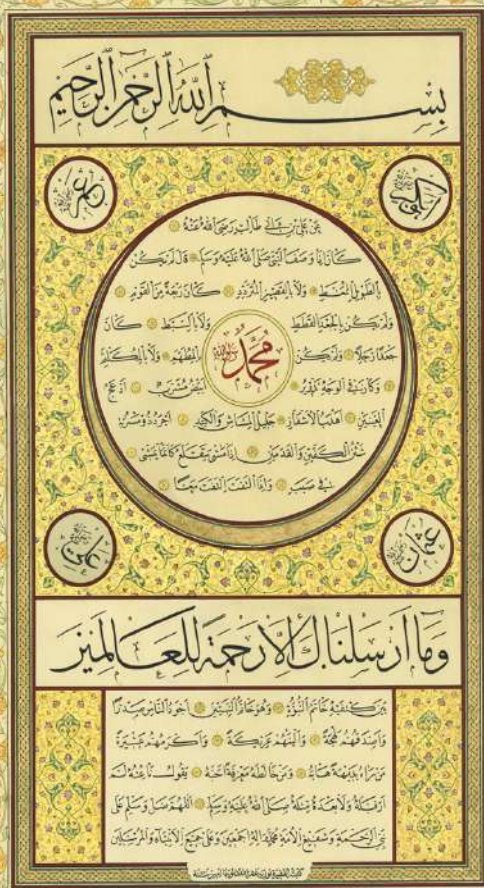 بِسْمِ اللّٰهِ الرَّحْمٰنِ الرَّحِيمِ
ابو بكر
عمر
عن علي بن ابي طالب رضي الله عنه
كان اذا وصف النبي صلى الله عليه وسلم قال لم يكن
بالطويل الممغط ولا بالقصير المتردد كان ربعة من القوم
ولم يكن بالجعد القطط ولا بالسبط كان
جعدا رجلا ولم يكن بالمطهم ولا بالمكلثم
محمد
وكان في الوجه تدوير ابيض مشرب ادعج
العينين اهدب الاشفار جليل المشاش والكتد اجرد ذو مسربة
شثن الكفين والقدمين اذا مشى يتقلع كانما يمشي
في صبب واذا التفت التفت معا
عثمان
علي
وَمَا اَرْسَلْنَاكَ اِلَّا رَحْمَةً لِلْعَالَمِينَ
بين كتفيه خاتم النبوة وهو خاتم النبيين اجود الناس صدرا
واصدقهم لهجة والينهم عريكة واكرمهم عشيرة
من رآه بديهة هابه ومن خالطه معرفة احبه يقول ناعته لم
ار قبله ولا بعده مثله صلى الله عليه وسلم اللهم صل وسلم على
نبي الرحمة وشفيع الامة محمد وآله اجمعين وعلى جميع الانبياء والمرسلين